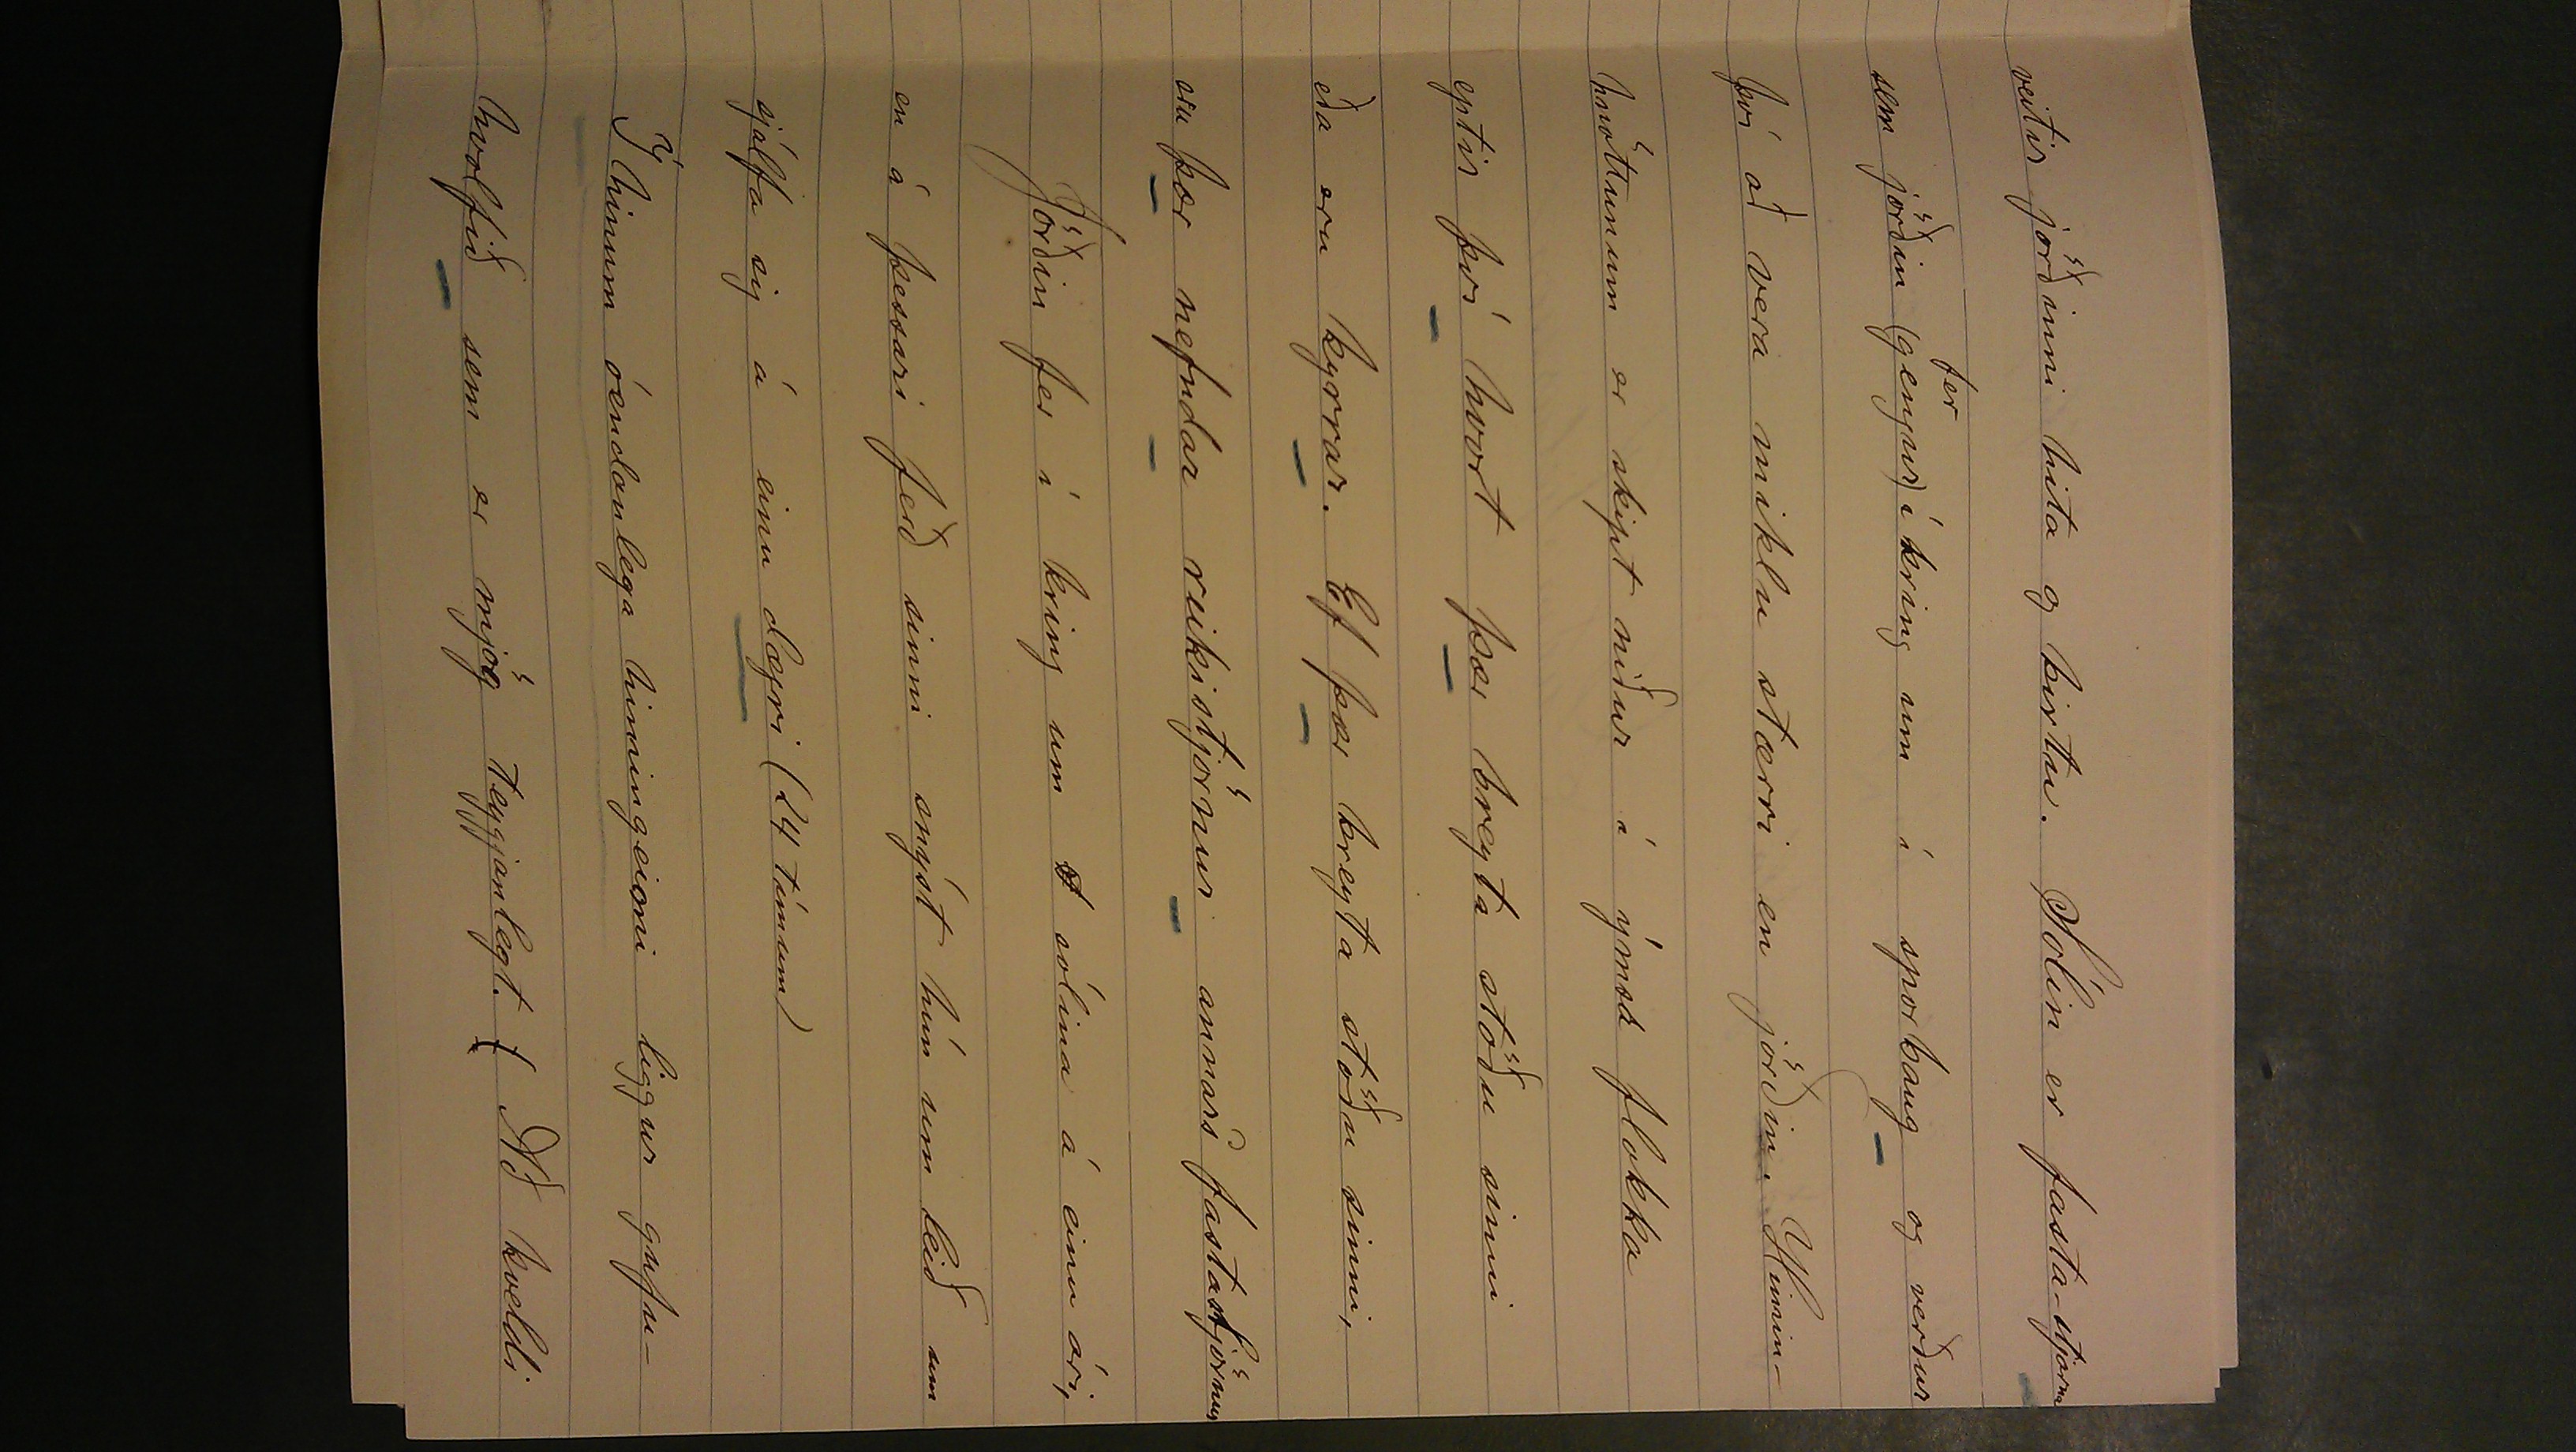 veitir jörðinni hita og birtu. Sólin er fasta-stjarna
fer
sem jörðin (gengur) í kring um í sporbaug og verður
því að vera miklu stærri en jörðin. Himin-
hnöttunum er skipt niður í ýmsa flokka
eptir því hvort þær breyta stöðu sinni
eða eru kyrrar. Ef þær breyta stöðu sinni,
eru þær nefndar reikistjörnur annars fastastjörnur
Jörðin fer í kring um sólina á einu ári,
en á þessari ferð sinni snýst hún um leið um
sjálfa sig á einu dægri (24 tímum)
Í hinum óendanlega himingeimi liggur gufu-
hvolfið sem er mjög teygjanlegt. ( Að kveldi